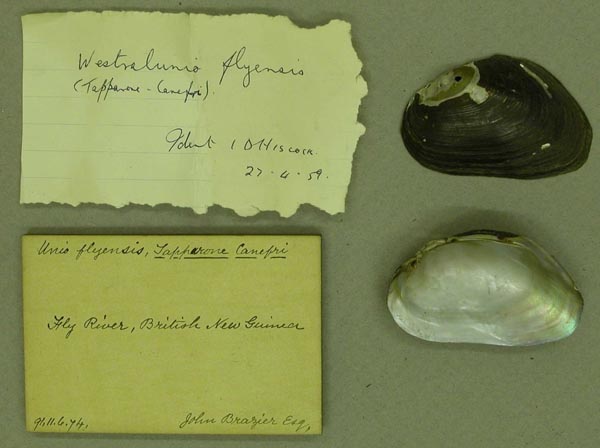 Westralunio flyensis
(Tapparone-Canefri).
Ident I D Hiscock.
27-4-59.
Unio flyensis, Tapparone Canefri
Fly River, British New Guinea
91.11.6.74,
John Brazier Esq,